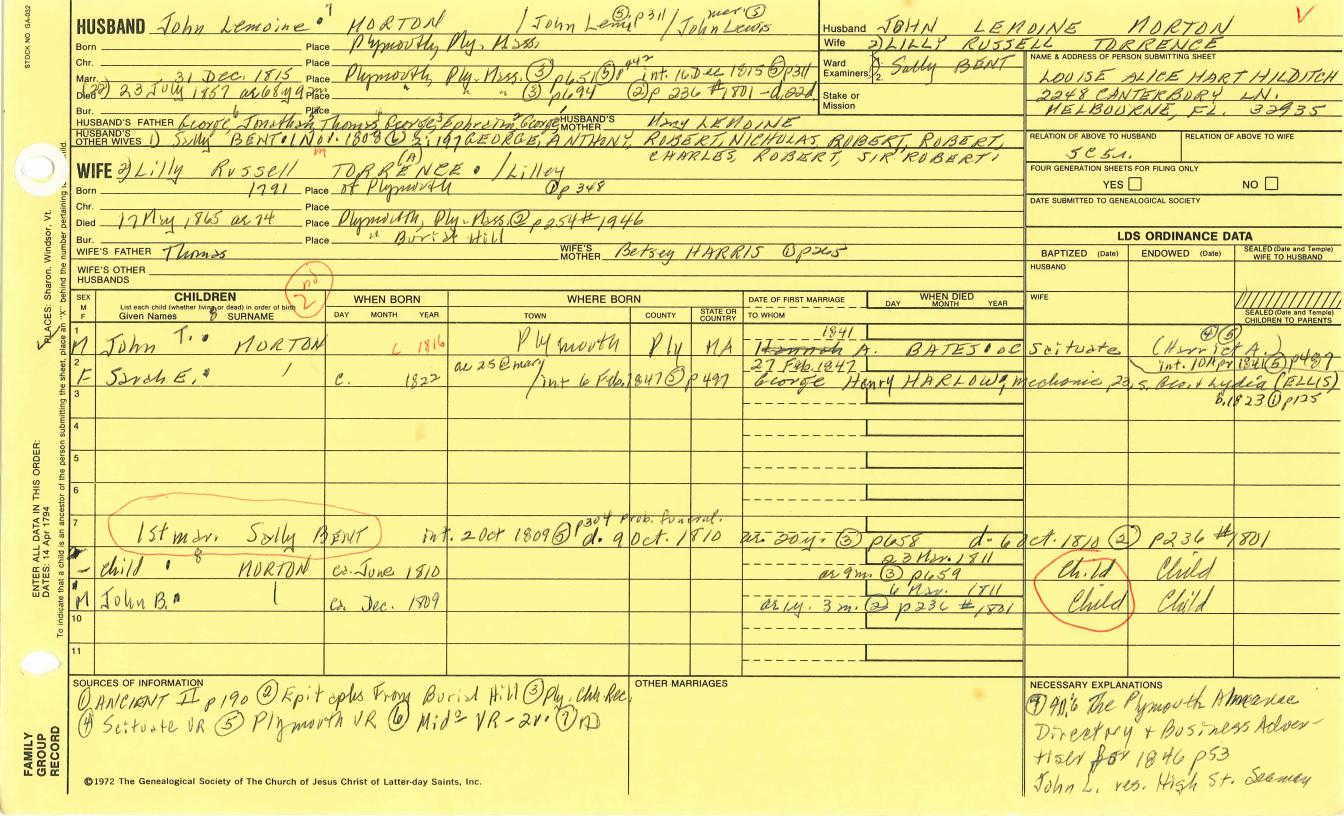 STOCK NO. GA-032
HUSBAND John Lemoine MORTON / John Lemu ⑤ p311 / mar. ③ John Lewis
Born Place Plymouth, Ply. Mass.
Chr. Place
Marr. 31 Dec. 1815 Place Plymouth, Ply. Mass. ③ p651 ⑤ p442 int. 16 Dec 1815 ⑤ p311
Died (22) 23 July 1857 ae 68y 9m Place " " ③ p694 ② p 236 #1801 - d. 22d
Bur. Place
HUSBAND'S FATHER George, Jonathan, Thomas, George, Ephraim, George HUSBAND'S MOTHER Mary LEMOINE
HUSBAND'S OTHER WIVES 1) Sally BENT 1 Nov. 1808 ⑥ 2:197 GEORGE, ANTHONY, ROBERT, NICHOLAS, ROBERT, ROBERT,
CHARLES, ROBERT, SIR ROBERT
WIFE 2) Lilly Russell TORRENCE (A) / Lilley
Born 1791 Place of Plymouth ① p 348
Chr. Place
Died 17 May 1865 ae 74 Place Plymouth, Ply. Mass. ② p254 # 1946
Bur. Place " Burial Hill
WIFE'S FATHER Thomas WIFE'S MOTHER Betsey HARRIS ① p265
WIFE'S OTHER HUSBANDS
Husband JOHN LEMOINE MORTON
Wife 2) LILLY RUSSELL TORRENCE
Ward Examiners: 1. 2. Sally BENT
Stake or Mission
NAME & ADDRESS OF PERSON SUBMITTING SHEET
LOUISE ALICE HART HILDITCH
2248 CANTERBURY LN.
MELBOURNE, FL. 32935
RELATION OF ABOVE TO HUSBAND RELATION OF ABOVE TO WIFE
FOUR GENERATION SHEETS FOR FILING ONLY
YES NO
DATE SUBMITTED TO GENEALOGICAL SOCIETY
LDS ORDINANCE DATA
BAPTIZED (Date) ENDOWED (Date) SEALED (Date and Temple) WIFE TO HUSBAND
HUSBAND
WIFE
SEALED (Date and Temple) CHILDREN TO PARENTS
2nd
SEX M F CHILDREN WHEN BORN WHERE BORN DATE OF FIRST MARRIAGE WHEN DIED
List each child (whether living or dead) in order of birth
Given Names SURNAME DAY MONTH YEAR TOWN COUNTY STATE OR COUNTRY TO WHOM DAY MONTH YEAR
1 M John T. MORTON c 1816 Plymouth Ply MA 1841 Hannah A. BATES of Scituate (Harriet A.) ④ ⑤
int. 10 Apr 1841 ⑤ p487
2 F Sarah E. c. 1822 ae 25 @ mary / int 6 Feb. 1847 ⑤ p497 27 Feb. 1847 George Henry HARLOW, mechanic, 23, s. Geo. & Lydia (ELLIS)
b. 1823 ① p125
3
4
5
6
7 1st mar. Sally BENT int. 2 Oct 1809 ⑤ p304 prob. funeral. d. 9 Oct. 1810 ae. 20y. ③ p658 d. 6 Oct. 1810 ② p236 #1801
- child 8 MORTON ca. June 1810 23 Mar. 1811 ae 9m. ③ p659 Child Child
M John B. ca Dec. 1809 6 Mar. 1811 ae 1y. 3m. ② p236 # 1801 Child Child
10
11
SOURCES OF INFORMATION
① ANCIENT II p190 ② Epitaphs From Burial Hill ③ Ply. Chh Rec.
④ Scituate VR ⑤ Plymouth VR ⑥ Midº VR-2v. ⑦ ND
OTHER MARRIAGES
NECESSARY EXPLANATIONS
The Plymouth Almanac
Directory & Business Adver-
tiser for 1846 p53
John L. res. High St. Seaman
©1972 The Genealogical Society of The Church of Jesus Christ of Latter-day Saints, Inc.
FAMILY GROUP RECORD
ENTER ALL DATA IN THIS ORDER:
DATES: 14 Apr 1794
PLACES: Sharon, Windsor, Vt.
To indicate that a child is an ancestor of the person submitting the sheet, place an "X" behind the number pertaining to